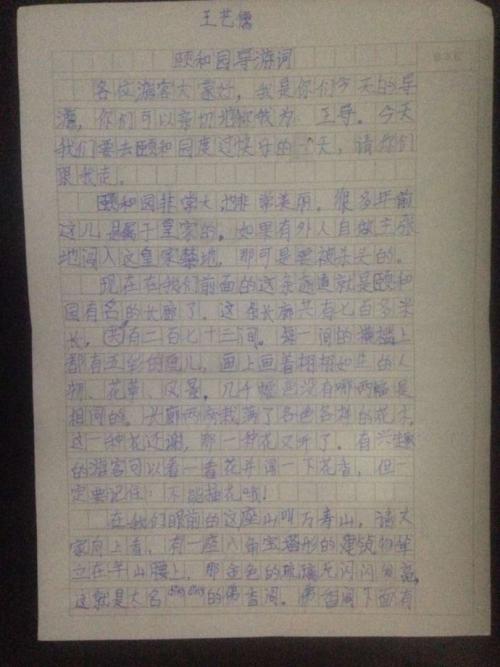 王艺儒
颐和园导游词
各位游客大家好，我是你们今天的导
游，你们可以亲切地称我为 王导。今天
我们要去颐和园度过快乐的一天，请你们
跟我走！
颐和园非常大，也非常美丽。很多年前
这儿是属于皇家的。如果有外人自做主张
地闯入这皇家禁地，那可是要被杀头的。
现在在我们前面的这条通道就是颐和
园有名的长廊了。这条长廊共有七百多米
长，因有二百七十三间。每一间的横槛上
都有五彩的画儿，画上画着栩栩如生的人
物、花草、风景。几千幅画没有哪两幅是
相同的。长廊两旁栽满了各色各样的花木，
这一种花还谢，那一种花又开了。有兴趣
的游客可以看一看花并闻一下花香，但一
定要记住：不能摘花哦！
在我们眼前的这座山叫万寿山，请大
家向上看，有一座八角宝塔形的建筑物耸
立在半山腰上，那金色的琉璃瓦闪闪发亮，
这就是大名 的佛香阁。佛香阁下面有